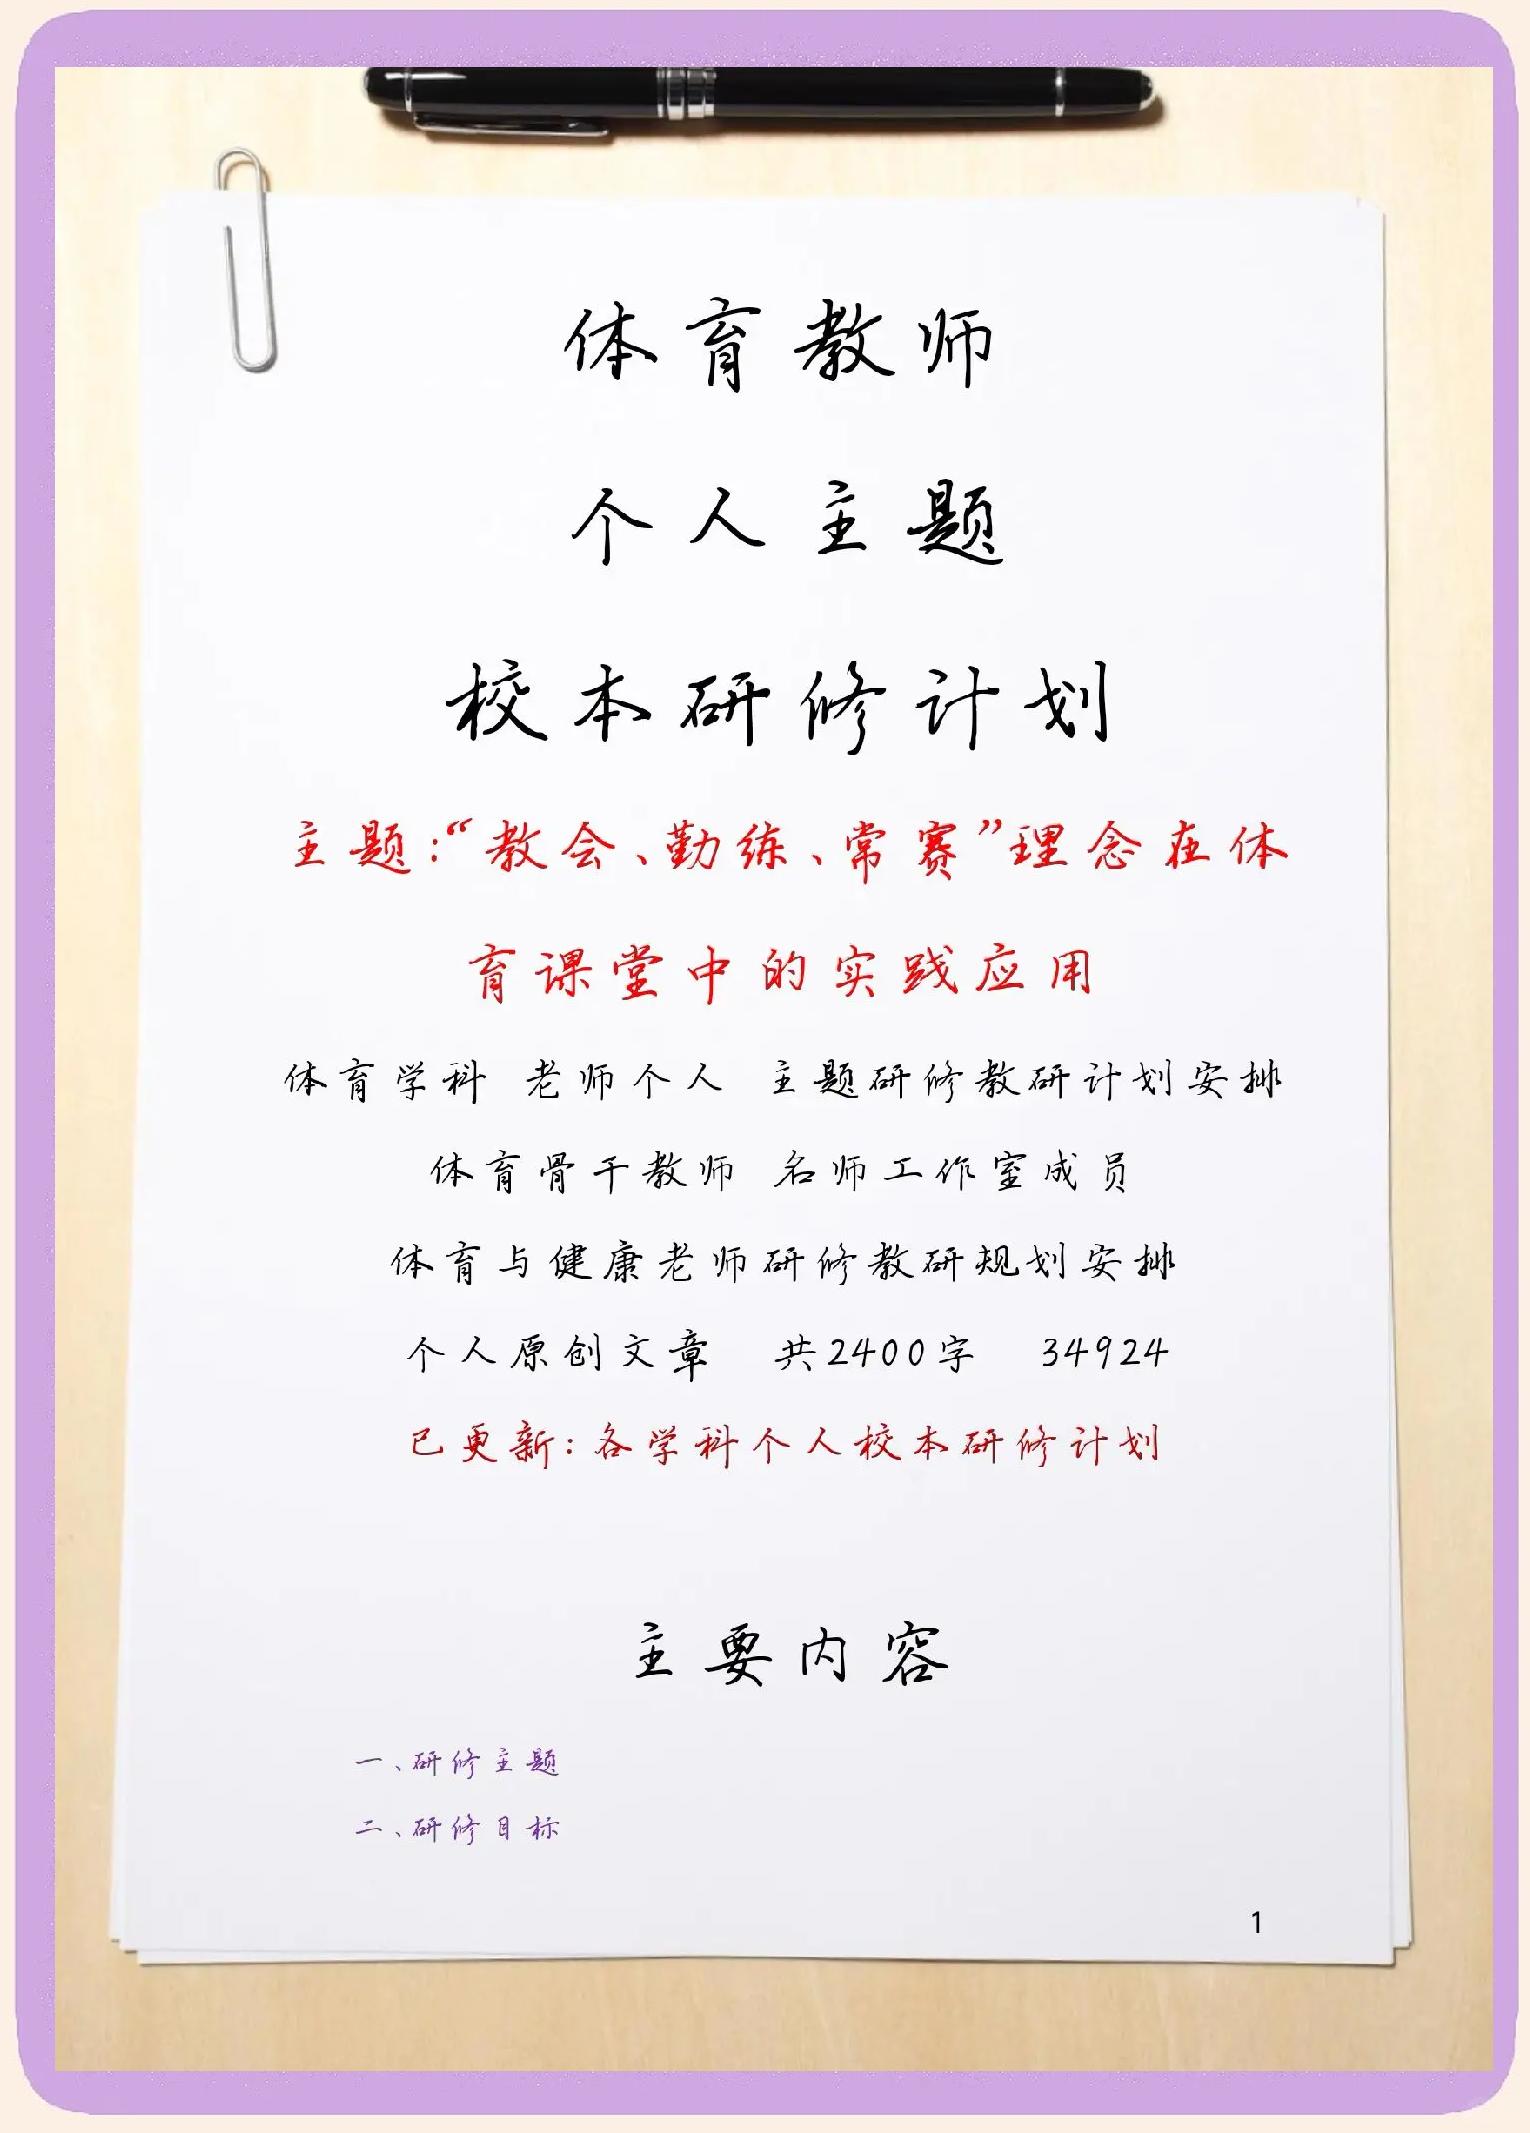 体育教师
个人主题
校本研修计划
主题:“教会、勤练、常赛”理念在体
育课堂中的实践应用
体育学科 老师个人 主题研修教研计划安排
体育骨干教师 名师工作室成员
体育与健康老师研修教研规划安排
个人原创文章 共2400字 34924
已更新:各学科个人校本研修计划
主要内容
一、研修主题
二、研修目标
1